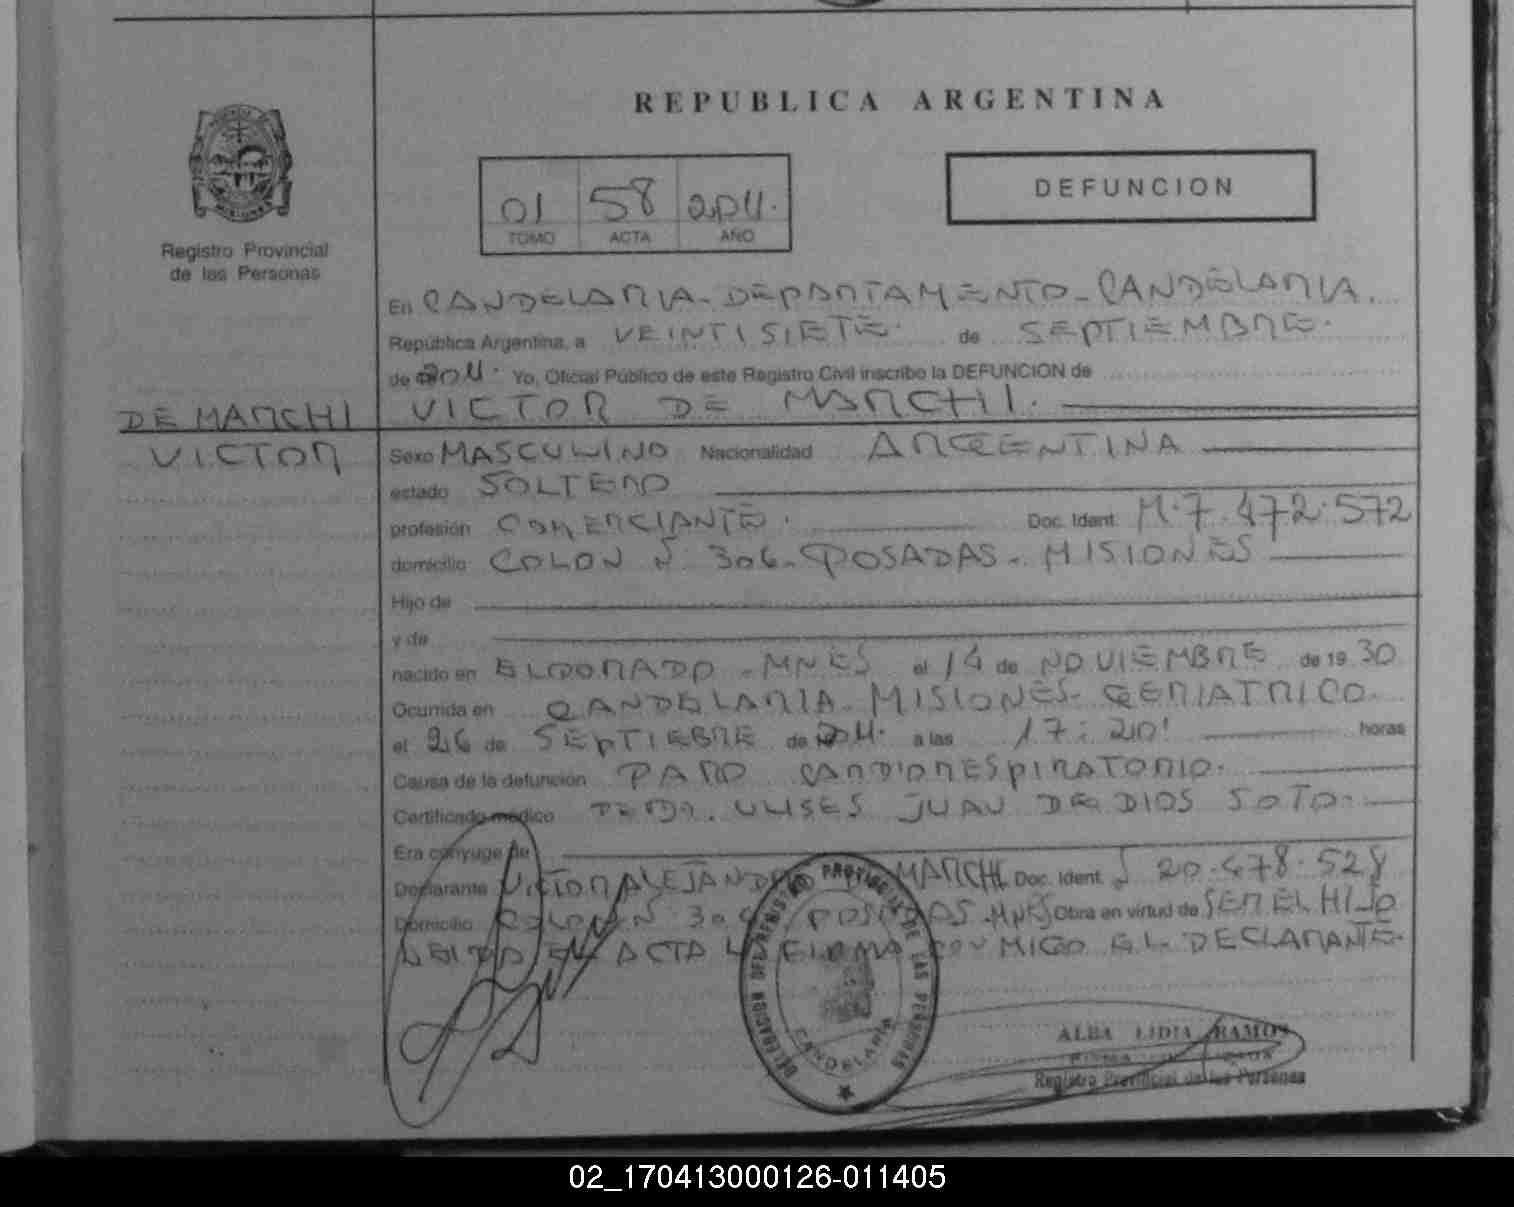 REPUBLICA ARGENTINA
DEFUNCION
01 58 2011.
TOMO ACTA AÑO
Registro Provincial
de las Personas
En CANDELARIA - DEPARTAMENTO - CANDELARIA
República Argentina, a VEINTISIETE. de SEPTIEMBRE.
de 2011. Yo, Oficial Público de este Registro Civil inscribo la DEFUNCION de
DE MARCHI VICTOR DE MARCHI.
VICTOR
Sexo MASCULINO Nacionalidad ARGENTINA
estado SOLTERO
profesión COMERCIANTE. Doc. Ident. M.7.472.572
domicilio COLON Nº 306 - POSADAS - MISIONES
Hijo de
y de
nacido en ELDORADO - MNES el 14 de NOVIEMBRE de 19 30
Ocurrida en CANDELARIA - MISIONES - GERIATRICO
el 26 de SEPTIEMBRE de 2011. a las 17:20' horas
Causa de la defunción PARO CARDIORESPIRATORIO.
Certificado médico ULISES JUAN DE DIOS SOTO.
Era cónyuge de
Declarante VICTOR ALEJANDRO MARCHI Doc. Ident. 20.478.528
Domicilio COLON Nº 306 POSADAS - MNES Obra en virtud de SER EL HIJO
LEIDA EL ACTA LA FIRMA CONMIGO EL DECLARANTE.
DELEGACION DEL REGISTRO PROVINCIAL DE LAS PERSONAS
CANDELARIA
ALBA LIDIA RAMOS
Registro Provincial de las Personas
02_170413000126-011405